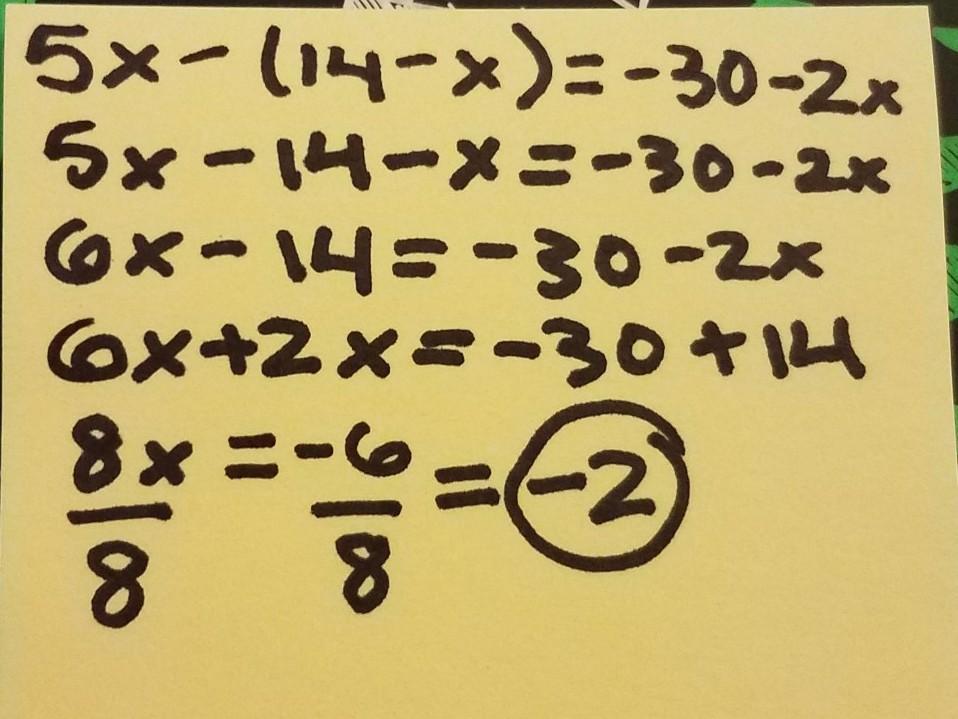 5x - (14 - x) = -30 - 2x
5x - 14 - x = -30 - 2x
6x - 14 = -30 - 2x
6x + 2x = -30 + 14
8x/8 = -6/8 = -2